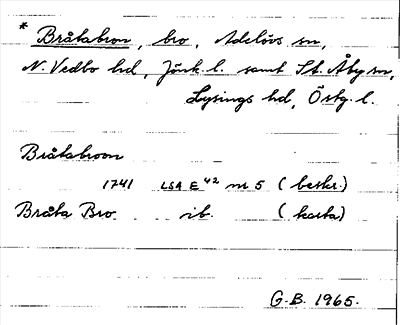 * Bråtabron, bro, Adelövs sn,
N. Vedbo hd, Jönk. l. samt St. Åby sn,
Lysings hd, Östg. l.
Bråtabroon
1741 LSA E 42 nr 5 (beskr.)
Bråta Bro ib. (karta)
G.B. 1965.